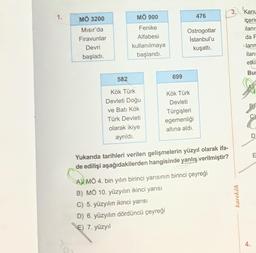 1.
MÖ 3200
Mısır'da
Firavunlar
Devri
başladı.
MÖ 900
Fenike
Alfabesi
kullanılmaya
başlandı.
476
Ostrogotlar
İstanbul'u
kuşattı.
582
Kök Türk
Devleti Doğu
ve Batı Kök
Türk Devleti
olarak ikiye
ayrıldı.
699
Kök Türk
Devleti
Türgişleri
egemenliği
altına aldı.
Yukarıda tarihleri verilen gelişmelerin yüzyıl olarak ifa-
de edilişi aşağıdakilerden hangisinde yanlış verilmiştir?
A) MÖ 4. bin yılın birinci yarısının birinci çeyreği
B) MÖ 10. yüzyılın ikinci yarısı
C) 5. yüzyılın ikinci yarısı
D) 6. yüzyılın dördüncü çeyreği
E) 7. yüzyıl
karekök
3.
Bu
D
E
4.